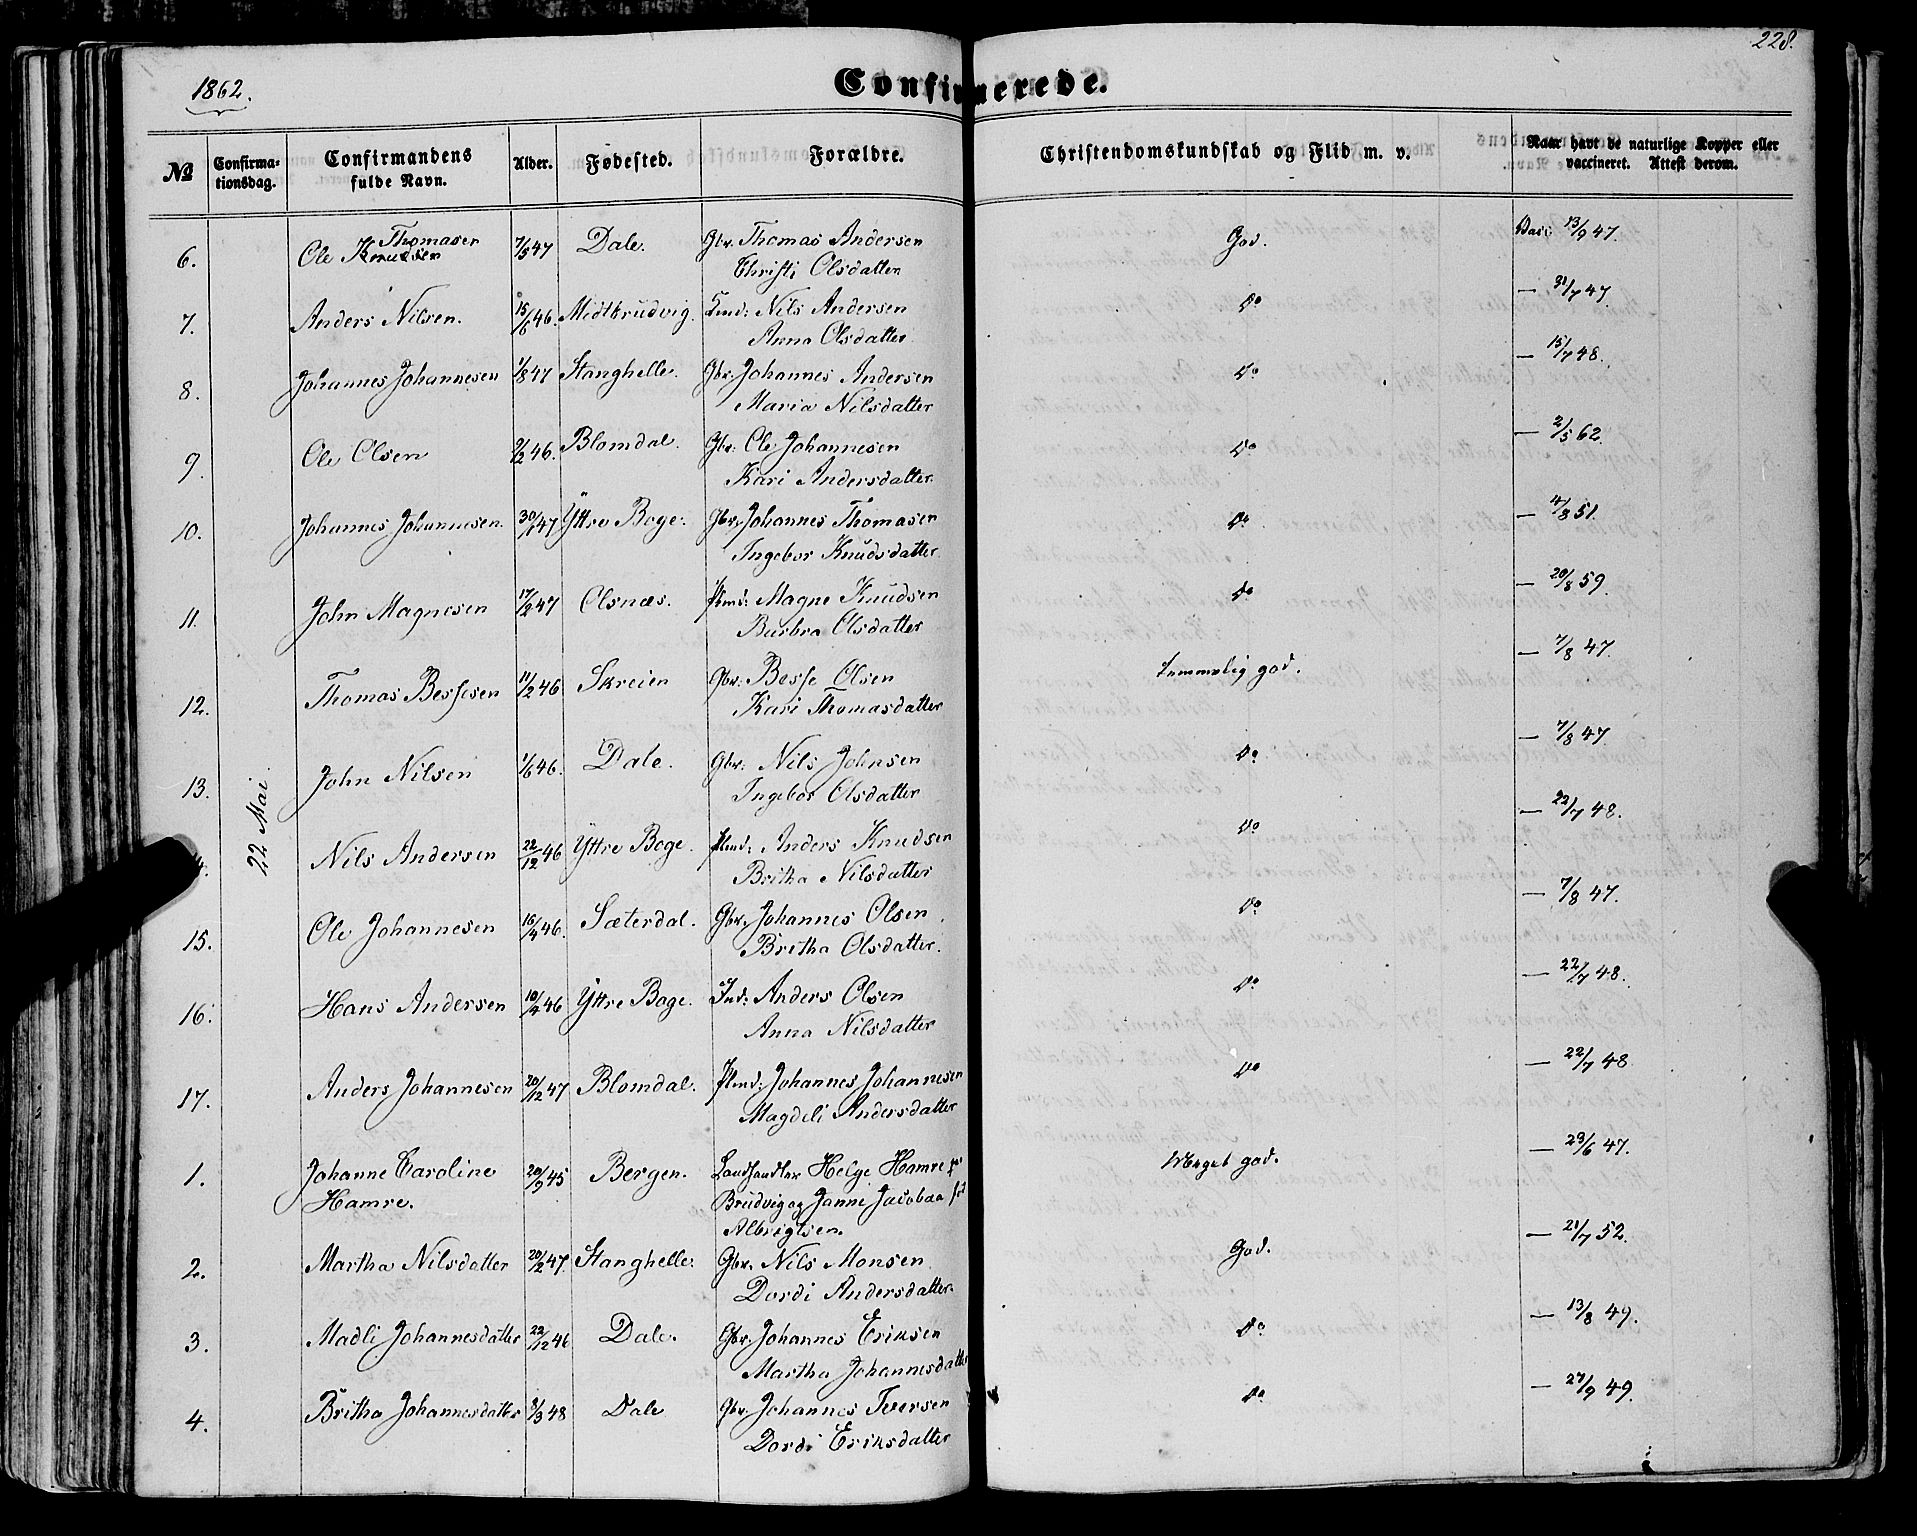 228.
1862.
Confirmerede.
No Confirmationsdag. Confirmandens fulde Navn. Alder. Fødested. Forældre. Christendomskundskab og Flid m. v. Naar havt de naturlige Kopper eller vaccineret. Attest derom.
22 Mai
6. Ole Thomasen Knudsen 7/5 47 Dale. Gbr. Thomas Andersen God. Vacc 13/9 47.
Christi Olsdatter
7. Anders Nilsen. 15/6 46. Midtbrudvig. Nils Andersen Do — 31/7 47.
Anna Olsdatter
8. Johannes Johannesen 1/8 47 Stanghelle. Gbr. Johannes Andersen Do — 15/7 48.
Maria Nilsdatter
9. Ole Olsen 2/2 46. Blomdal. Gbr. Ole Johannesen Do — 2/5 62.
Kari Andersdatter.
10. Johannes Johannesen. 30/1 47 Yttre Boge. Gbr. Johannes Thomasen Do — 4/8 51.
Ingebor Knudsdatter.
11. John Magnesen 17/2 47 Olsnæs. Plmd: Magne Knudsen Do — 20/8 59.
Barbra Olsdatter
12. Thomas Bessesen 11/2 46 Skreien Gbr. Besse Olsen temmelig god. — 7/8 47.
Kari Thomasdatter
13. John Nilsen 1/6 46. Dale. Gbr. Nils Johnsen Do — 7/8 47.
Ingebor Olsdatter
Nils Andersen 22/12 46 Yttre Boge. Plmd: Anders Knudsen Do — 22/7 48.
Britha Nilsdatter
15. Ole Johannesen 16/4 46. Sæterdal. Gbr. Johannes Olsen Do — 7/8 47.
Britha Olsdatter.
16. Hans Andersen 10/4 46 Yttre Boge. Ind: Anders Olsen Do — 22/7 48.
Anna Nilsdatter
17. Anders Johannesen 20/12 47 Blomdal. Plmd: Johannes Johannesen Do — 22/7 48
Magdeli Andersdatter
1. Johanne Caroline 20/9 45 Bergen. Landhandler Helge Hamre Meget god. — 23/6 47.
Hamre. Brudvig og Janni Jacobaa
Albrigtsen.
2. Martha Nilsdatter 20/2 47. Stanghelle. Gbr. Nils Monsen God. — 21/7 52.
Dordi Andersdatter.
3. Madli Johannesdatter 22/12 46 Dale. Gbr. Johannes Eriksen Do — 13/8 49.
Martha Johannesdatter
4. Britha Johannesdatter 8/3 48 Dale Gbr. Johannes Iversen Do — 27/9 49.
Dordi Eriksdatter